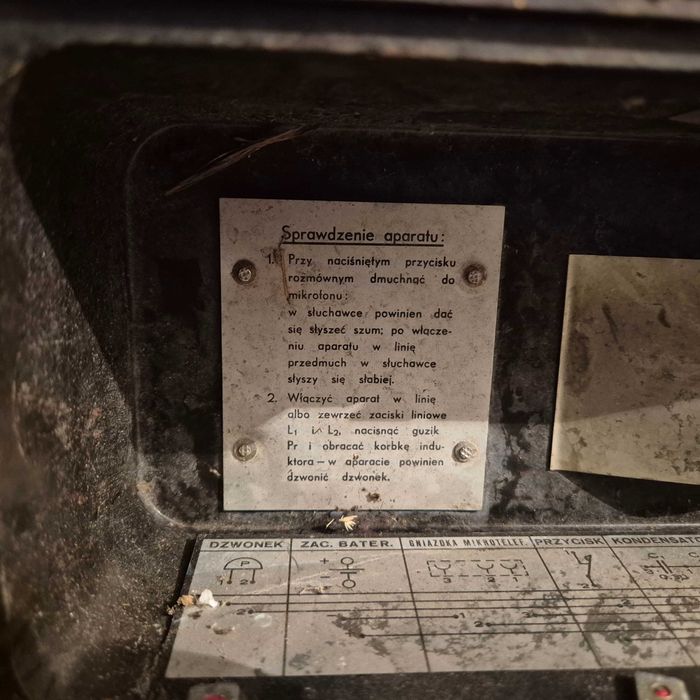 Sprawdzenie aparatu:
1. Przy naciśniętym przycisku
rozmównym dmuchnąć do
mikrofonu:
w słuchawce powinien dać
się słyszeć szum; po włącze-
niu aparatu w linię
przedmuch w słuchawce
słyszy się słabiej.
2. Włączyć aparat w linię
albo zewrzeć zaciski liniowe
L₁ i L₂, nacisnąć guzik
Pr i obracać korbkę indu-
ktora — w aparacie powinien
dzwonić dzwonek.
DZWONEK ZAC. BATER. GNIAZDKA MIKROTELEF. PRZYCISK KONDENSATO
P
+
-